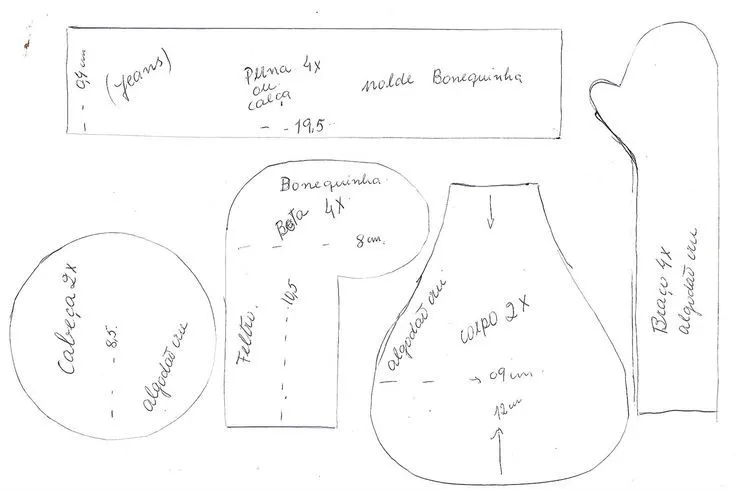 04 cm
(Jeans)
Perna 4x
ou
calça
molde Bonequinha
19,5
Bonequinha
Bota 4x
8 cm.
Feltro.
10,5
Cabeça 2x
8,5
algodão cru
algodão cru
corpo 2x
09 cm
12 cm
Braço 4x
algodão cru